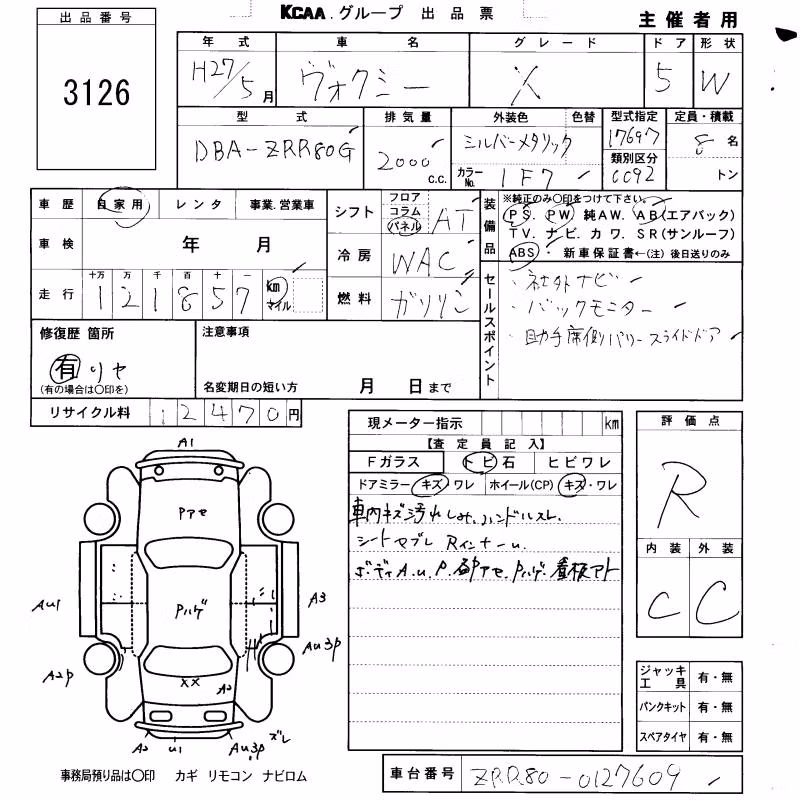 KCAA.グループ 出品票
主催者用
出品番号
3126
年式 車名 グレード ドア 形状
H27/5月 ヴォクシー X 5 W
型式 排気量 外装色 色替 型式指定 定員・積載
DBA-ZRR80G 2000 c.c. シルバーメタリック 17697 8名
カラーNo. 1F7 類別区分 0092 トン
車歴 自家用 レンタ 事業.営業車
シフト フロア コラム パネル AT
装備品 ※純正のみ〇印をつけて下さい。
PS. PW 純AW. AB(エアバック)
TV. ナビ. カワ. SR(サンルーフ)
ABS・新車保証書←(注)後日送りのみ
車検 年 月
冷房 WAC
走行 十万 万 千 百 十 一
121857 km マイル
燃料 ガソリン
セールスポイント
・社外ナビ
・バックモニター
・助手席側パワースライドドア
修復歴 箇所
有 リヤ
(有の場合は〇印を)
注意事項
名変期日の短い方 月 日まで
リサイクル料 12470円
現メーター指示 km
【査定員記入】
Fガラス トビ石 ヒビワレ
ドアミラー キズ・ワレ ホイール(CP) キズ・ワレ
車内キズ汚れしみ.ハンドルスレ.
シートヤブレ Rインナーu.
ボディA.u.P.多アセ.Pハゲ.看板アト
評価点
R
内装 外装
C C
A1
Pアセ
Pハゲ
Au1
A3
Au3P
A2P
XX
A2
A2
u1
Au3P
ズレ
ジャッキ工具 有・無
パンクキット 有・無
スペアタイヤ 有・無
事務局預り品は〇印 カギ リモコン ナビロム
車台番号 ZRR80-0127609